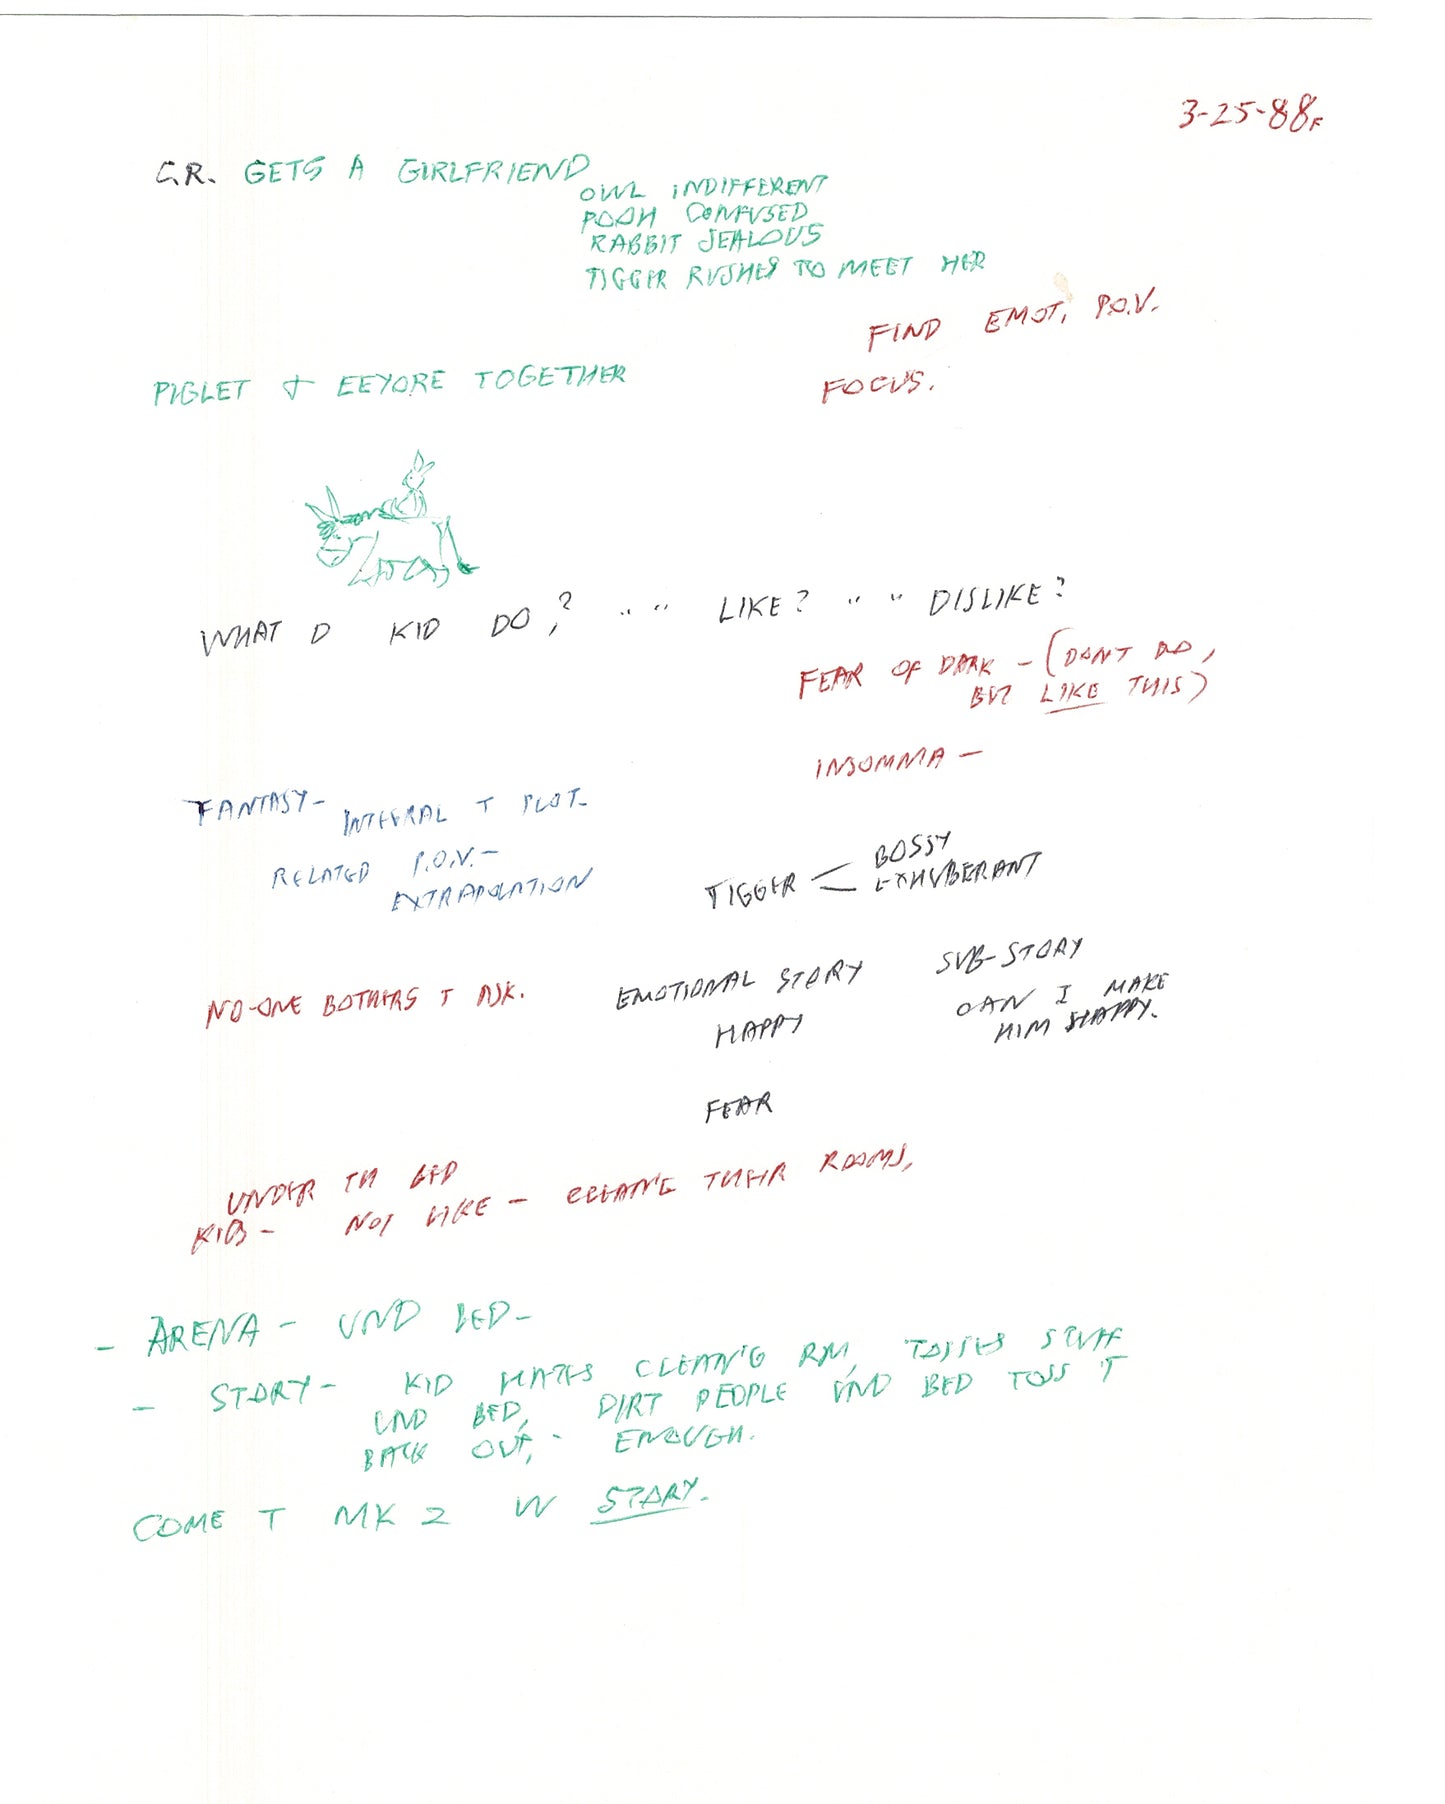 3-25-88F
C.R. GETS A GIRLFRIEND
OWL INDIFFERENT
POOH CONFUSED
RABBIT JEALOUS
TIGGER RUSHES TO MEET HER
FIND EMOT, P.O.V.
FOCUS.
PIGLET & EEYORE TOGETHER
WHAT D KID DO,? " " LIKE? " " DISLIKE?
FEAR OF DARK - (DONT DO,
BUT LIKE THIS)
INSOMNIA -
FANTASY - INTEGRAL T PLOT-
RELATED P.O.V. -
EXTRAPOLATION
TIGGER < BOSSY
EXHUBERANT
NO-ONE BOTHERS T ASK.
EMOTIONAL STORY
HAPPY
SUB-STORY
CAN I MAKE
HIM HAPPY.
FEAR
UNDER TH BED
KIDS - NOT LIKE - CLEAN'G THEIR ROOMS,
- ARENA - UND BED -
- STORY - KID HATES CLEAN'G RM, TOSSES STUFF
UND BED, DIRT PEOPLE UND BED TOSS IT
BACK OUT, - ENOUGH.
COME T MK 2 W STORY.